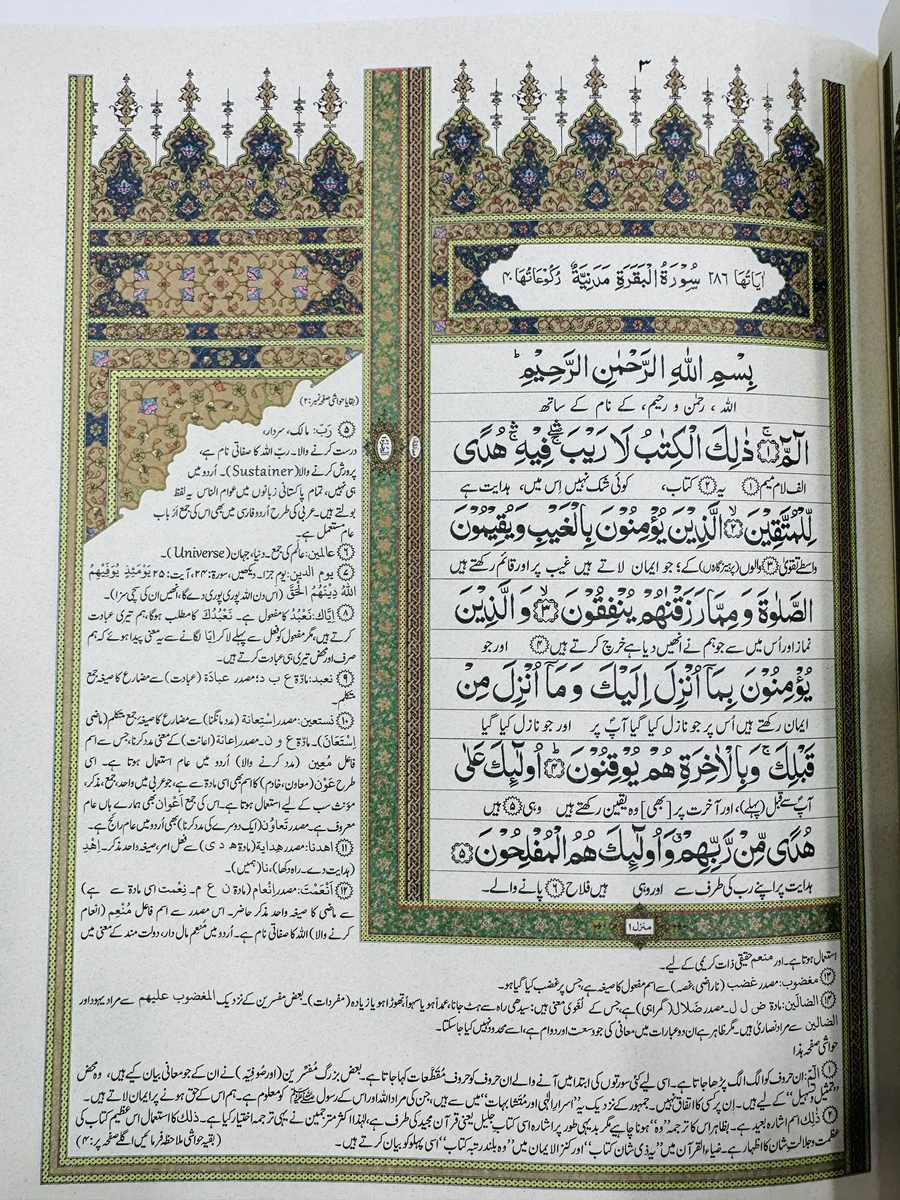 ۳
اٰیَاتُهَا ۲۸۶ سُوْرَةُ الْبَقَرَةِ مَدَنِیَّةٌ رُکُوْعَاتُهَا ۴۰
بِسْمِ اللهِ الرَّحْمٰنِ الرَّحِیْمِ
اللہ ، رحمٰن و رحیم ، کے نام کے ساتھ
الٓمّٓ ۚ﴿۱﴾ ذٰلِكَ الْكِتٰبُ لَا رَیْبَ ۛۖۚ فِیْهِ ۛۚ هُدًی
الف لام میم ① یہ ② کتاب، کوئی شک نہیں اِس میں، ہدایت ہے
لِّلْمُتَّقِیْنَ ۙ﴿۲﴾ الَّذِیْنَ یُؤْمِنُوْنَ بِالْغَیْبِ وَ یُقِیْمُوْنَ
واسطے تقویٰ ③ والوں (پرہیزگاروں) کے؛ جو ایمان لاتے ہیں غیب پر اور قائم رکھتے ہیں
الصَّلٰوةَ وَ مِمَّا رَزَقْنٰهُمْ یُنْفِقُوْنَ ۙ﴿۳﴾ وَ الَّذِیْنَ
نماز اور اُس میں سے جو ہم نے اُنھیں دیا ہے خرچ کرتے ہیں ④ اور جو
یُؤْمِنُوْنَ بِمَاۤ اُنْزِلَ اِلَیْكَ وَ مَاۤ اُنْزِلَ مِنْ
ایمان رکھتے ہیں اُس پر جو نازل کیا گیا آپؐ پر اور جو نازل کیا گیا
قَبْلِكَ ۚ وَ بِالْاٰخِرَةِ هُمْ یُوْقِنُوْنَ ؕ﴿۴﴾ اُولٰٓىِٕكَ عَلٰی
آپؐ سے قبل (پہلے)، اور آخرت پر [بھی] وہ یقین رکھتے ہیں وہی ⑤ ہیں
هُدًی مِّنْ رَّبِّهِمْ ۗ وَ اُولٰٓىِٕكَ هُمُ الْمُفْلِحُوْنَ ﴿۵﴾
ہدایت پر اپنے رب کی طرف سے اور وہی ہیں فلاح ⑥ پانے والے۔
منزل ۱
(بقایا حواشی صفحہ نمبر: ۲)
⑤ رَبّ: مالک، سردار،
درست کرنے والا۔ ربّ اللہ کا صفاتی نام ہے،
پرورش کرنے والا (Sustainer)۔ اُردو میں
ہی نہیں، تمام پاکستانی زبانوں میں عوام الناس یہ لفظ
بولتے ہیں۔ عربی کی طرح اُردو فارسی میں بھی اس کی جمع اَرباب
عام مستعمل ہے۔
⑥ عالمین: عالَم کی جمع۔ دنیا، جہان (Universe)۔
⑦ یوم الدین: یوم جزا۔ دیکھیں، سورۃ: ۲۴، آیت: ۲۵ یَوْمَىِٕذٍ یُّوَفِّیْهِمُ
اللهُ دِیْنَهُمُ الْحَقَّ (اس دن اللہ پوری پوری دے گا، اُنھیں ان کی سچی سزا)۔
⑧ اِیَّاكَ: نَعْبُدُ کا مفعول ہے۔ نَعْبُدُكَ کا مطلب ہوگا، ہم تیری عبادت
کرتے ہیں، مگر مفعول کو فعل سے پہلے لاکر اِیَّا لگانے سے یہ معنی پیدا ہوئے کہ ہم
صرف اور محض تیری ہی عبادت کرتے ہیں۔
⑨ نعبد: مادّہ ع ب د؛ مصدر عبادَۃ (عبادت) سے مضارع کا صیغہ جمع
متکلم۔
⑩ نستعین: مصدر اِسْتِعانَة (مدد مانگنا) سے مضارع کا صیغہ جمع متکلم (ماضی
اِسْتَعَانَ)۔ مادّہ ع و ن۔ مصدر اِعانة (اعانت) کے معنی مدد کرنا، جس سے اسم
فاعل مُعِین (مدد کرنے والا) اُردو میں عام استعمال ہوتا ہے۔ اسی
طرح عَوْن (معاون، خادم) کا اسم بھی اسی مادّہ سے ہے، جو عربی میں واحد، جمع، مذکر،
مؤنث سب کے لیے استعمال ہوتا ہے۔ اس کی جمع اَعْوان بھی ہمارے ہاں عام
معروف ہے۔ مصدر تَعاوُن (ایک دوسرے کی مدد کرنا) بھی اُردو میں عام رائج ہے۔
⑪ اھدنا: مصدر ھِدایة (مادّہ ہ د ی) سے فعل امر، صیغہ واحد مذکر۔ اِھْدِ
(ہدایت دے۔ راہ دکھا)، نَا (ہمیں)۔
⑫ اَنْعَمْتَ: مصدر اِنْعام (مادّہ ن ع م۔ نِعمت اسی مادّہ سے ہے)
سے ماضی کا صیغہ واحد مذکر حاضر۔ اس مصدر سے اسم فاعل مُنْعِم (انعام
کرنے والا) اللہ کا صفاتی نام ہے۔ اُردو میں مُنعِم مال دار، دولت مند کے معنی میں
استعمال ہوتا ہے۔ اور منعم حقیقی ذات کریمی کے لیے۔
⑬ مغضوب: مصدر غضب (ناراضی، غصہ) سے اسم مفعول کا صیغہ ہے، جس پر غضب کیا گیا ہو۔
⑭ الضالین: مادّہ ض ل ل۔ مصدر ضَلال (گمراہی) ہے، جس کے لُغوی معنی ہیں: سیدھی راہ سے ہٹ جانا، عمداً ہو یا سہواً، تھوڑا ہو یا زیادہ (مفردات)۔ بعض مفسرین کے نزدیک المغضوب علیھم سے مراد یہود اور
الضالین سے مراد نصاریٰ ہیں۔ مگر ظاہر ہے ان دو عبارات میں معانی کی جو وسعت اور دوام ہے، اسے محدود نہیں کیا جاسکتا۔
حواشی صفحہ ہذا
① الٓمّٓ: ان حروف کو الگ الگ پڑھا جاتا ہے۔ اسی لیے کئی سورتوں کی ابتدا میں آنے والے ان حروف کو حروف مُقطّعات کہا جاتا ہے۔ بعض بزرگ مُفسّرین (اور صوفیہ) نے ان کے جو معانی بیان کیے ہیں، وہ محض
"تمثیل و تسہیل" کے لیے ہیں۔ اِن پر کسی کا اتفاق نہیں۔ جمہور کے نزدیک یہ "اسرارِ الٰہی اور متشابہات" میں سے ہیں، جس کی مراد اللہ اور اس کے رسول ﷺ کو معلوم ہے۔ ہم اس کے حق ہونے پر ایمان لاتے ہیں۔
② ذٰلك: اسم اشارہ بعید ہے۔ بظاہر اس کا ترجمہ "وہ" ہونا چاہیے مگر بدیہی طور پر اشارہ اسی کتاب جلیل یعنی قرآن مجید کی طرف ہے، لہٰذا اکثر مترجمین نے یہی ترجمہ اختیار کیا ہے۔ ذٰلك کا استعمال اس عظیم کتاب کی
عظمت و جلالتِ شان کا اظہار ہے۔ ضیاء القرآن میں "یہ ذی شان کتاب" اور کنز الایمان میں "وہ بلند رتبہ کتاب" اسی پہلو کو بیان کرتے ہیں۔ (بقیہ حواشی ملاحظہ فرمائیں اگلے صفحہ پر: ۴)